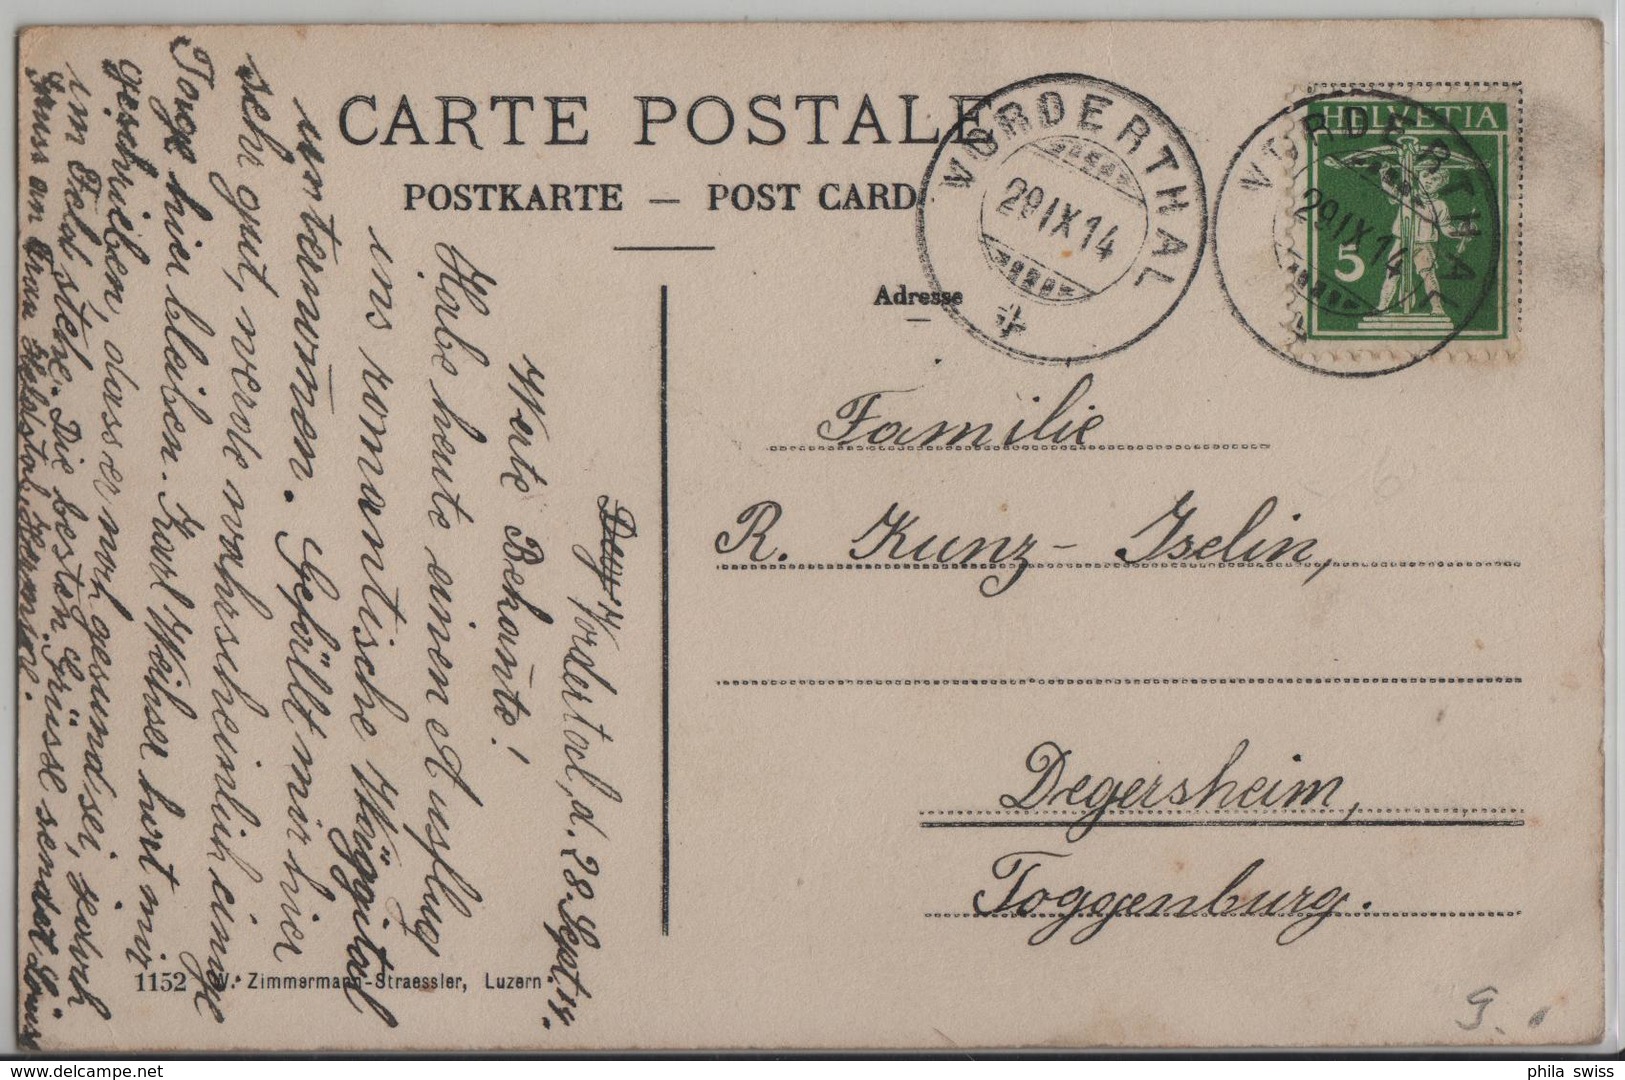 CARTE POSTALE
POSTKARTE — POST CARD
Adresse
VORDERTHAL
29 IX 14
VORDERTHAL
29 IX 14
HELVETIA
5
Familie
R. Kunz-Iselin,
Degersheim,
Toggenburg.
Vordertal, d. 28. Sept. 14.
Werte Bekannte!
Habe heute einen Ausflug
ins romantische Wäggital
unternommen. Gefällt mir hier
sehr gut, werde wahrscheinlich einige
Tage hier bleiben. Karl Weihser hort mir
geschrieben, dass er noch gesund sei, jedoch
im Feld stehe. Die besten Grüsse sendet Louise
Gruss an Frau
1152 W. Zimmermann-Straessler, Luzern.
9.
phila swiss